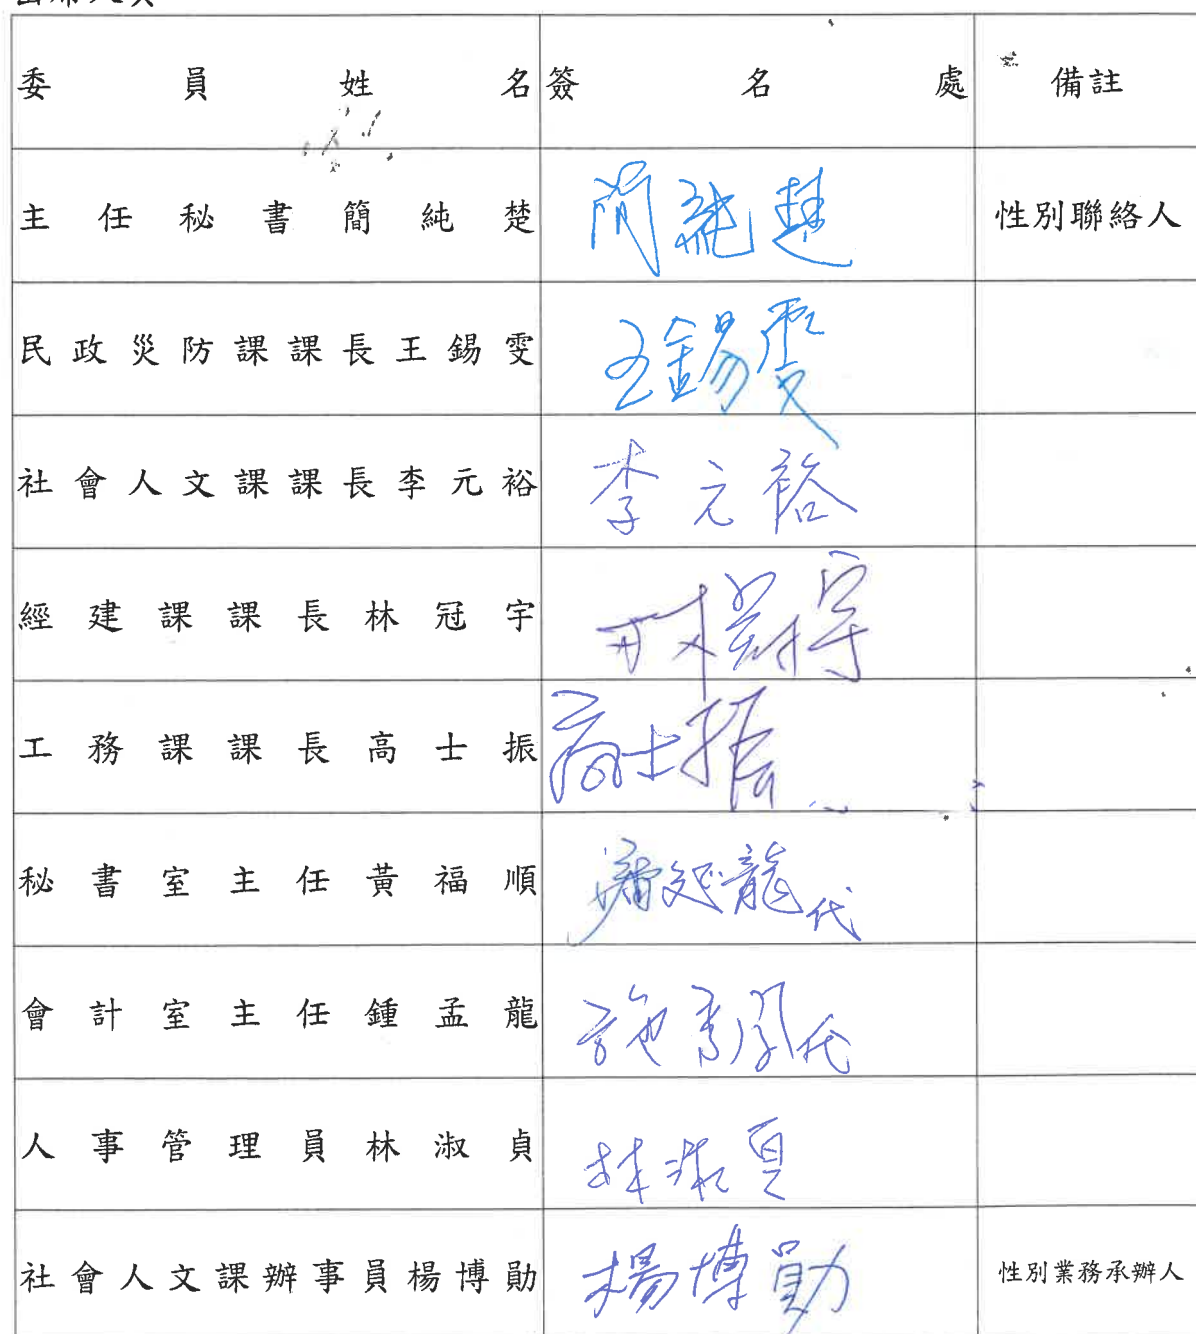 委員姓名 簽名處 備註
主任秘書簡純楚 簡純楚 性別聯絡人
民政災防課課長王錫雯 王錫雯
社會人文課課長李元裕 李元裕
經建課課長林冠宇 林冠宇
工務課課長高士振 高士振
秘書室主任黃福順 龍代
會計室主任鍾孟龍 施 代
人事管理員林淑貞 林淑貞
社會人文課辦事員楊博勛 楊博勛 性別業務承辦人